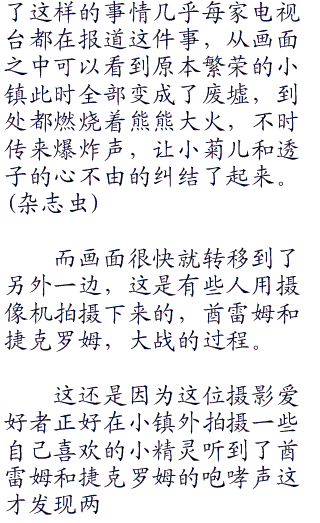 了这样的事情几乎每家电视
台都在报道这件事，从画面
之中可以看到原本繁荣的小
镇此时全部变成了废墟，到
处都燃烧着熊熊大火，不时
传来爆炸声，让小菊儿和透
子的心不由的纠结了起来。
(杂志虫)
而画面很快就转移到了
另外一边，这是有些人用摄
像机拍摄下来的，酋雷姆和
捷克罗姆，大战的过程。
这还是因为这位摄影爱
好者正好在小镇外拍摄一些
自己喜欢的小精灵听到了酋
雷姆和捷克罗姆的咆哮声这
才发现两